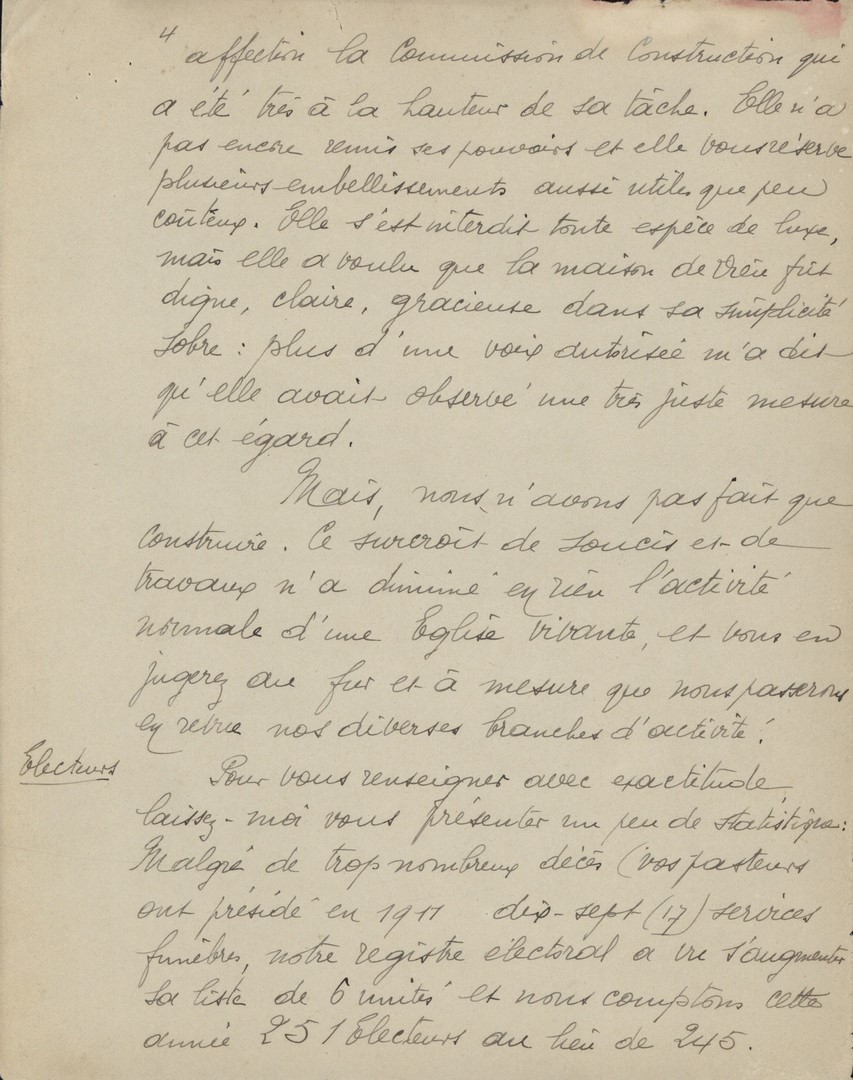 4
affection la Commission de Construction qui
a été très à la hauteur de sa tâche. Elle n'a
pas encore remis ses pouvoirs et elle vous réserve
plusieurs embellissements aussi utiles que peu
coûteux. Elle s'est interdit toute espèce de luxe,
mais elle a voulu que la maison de Dieu fût
digne, claire, gracieuse dans sa simplicité
sobre : plus d'une voix autorisée m'a dit
qu'elle avait observé une très juste mesure
à cet égard.
Mais, nous n'avons pas fait que
construire. Ce surcroît de soucis et de
travaux n'a diminué en rien l'activité
normale d'une Eglise vivante, et vous en
jugerez au fur et à mesure que nous passerons
en revue nos diverses branches d'activité.
Electeurs
Pour vous renseigner avec exactitude,
laissez-moi vous présenter un peu de statistique :
Malgré de trop nombreux décès (vos pasteurs
ont présidé en 1911 dix-sept (17) services
funèbres, notre registre électoral a vu s'augmenter
sa liste de 6 unités et nous comptons cette
année 251 Electeurs au lieu de 245.